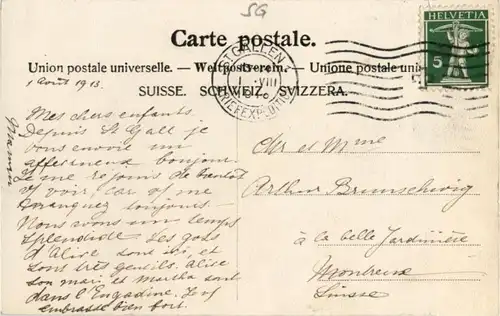 SG
Carte postale.
Union postale universelle. — Weltpostverein. — Unione postale uni
SUISSE. SCHWEIZ. SVIZZERA.
HELVETIA
5
ST. GALLEN
VIII
BRIEFEXPEDITION
1 août 1913.
Mes chers enfants
Depuis St Gall je
vous envoie un
affectueux bonjour.
Je me rejouis de bientot
vs voir, car vs me
manquez toujours.
Nous avons un temps
splendide. Les gons
d'Alice sont ici, et
sont très gentils. Alice
son mari et Martha sont
dans l'Engadine. Je vs
embrasse bien fort.
Maman
Mr et Mme
Arthur Brunschwig
à la belle Jardinière
Montreux
Suisse